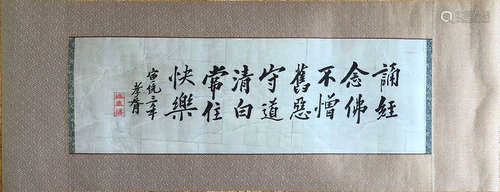 誦經
念佛
不憎
舊惡
守道
清白
常住
快樂
宣統三年
孝胥